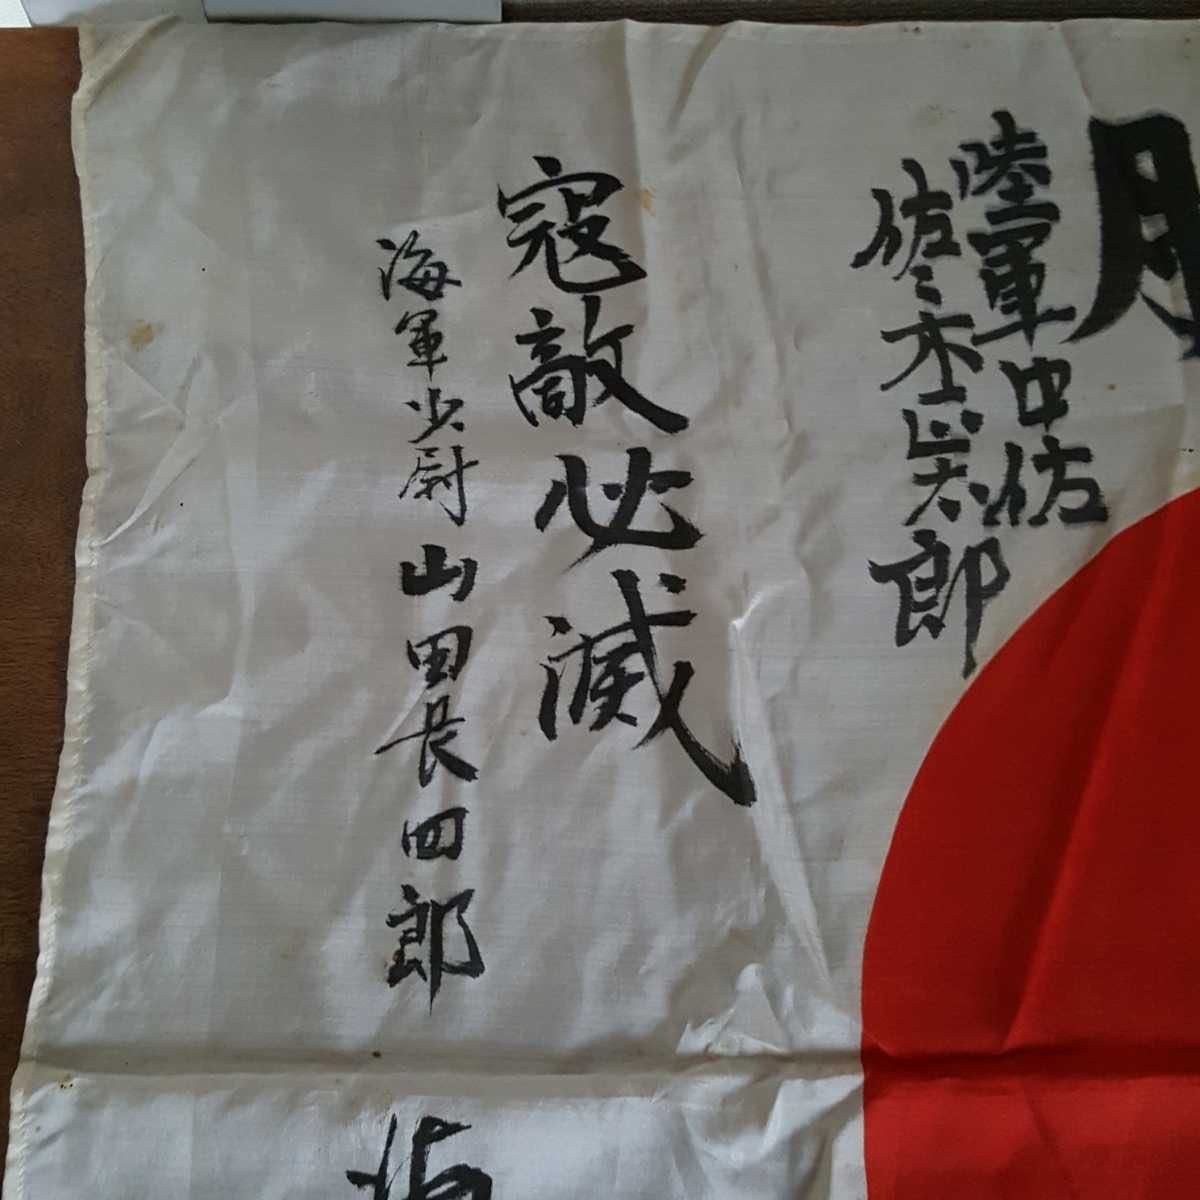 陸軍中佐
佐々木正太郎
寇敵必滅
海軍少尉 山田長四郎